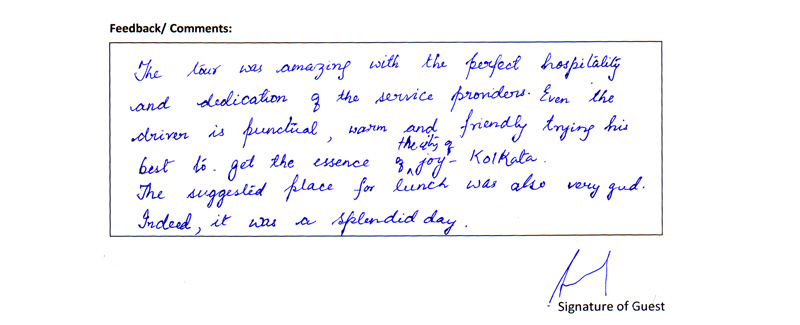 Feedback/ Comments:
The tour was amazing with the perfect hospitality
and dedication of the service providers. Even the
driver is punctual, warm and friendly trying his
the city of
best to. get the essence of ^ joy - Kolkata.
The suggested place for lunch was also very gud.
Indeed, it was a splendid day.
Signature of Guest